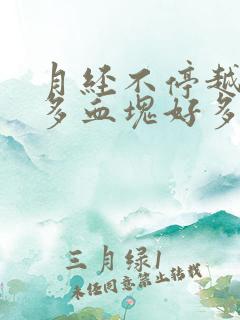 月经不停越
多血塊好多
三月绿1
未经同意禁止转载